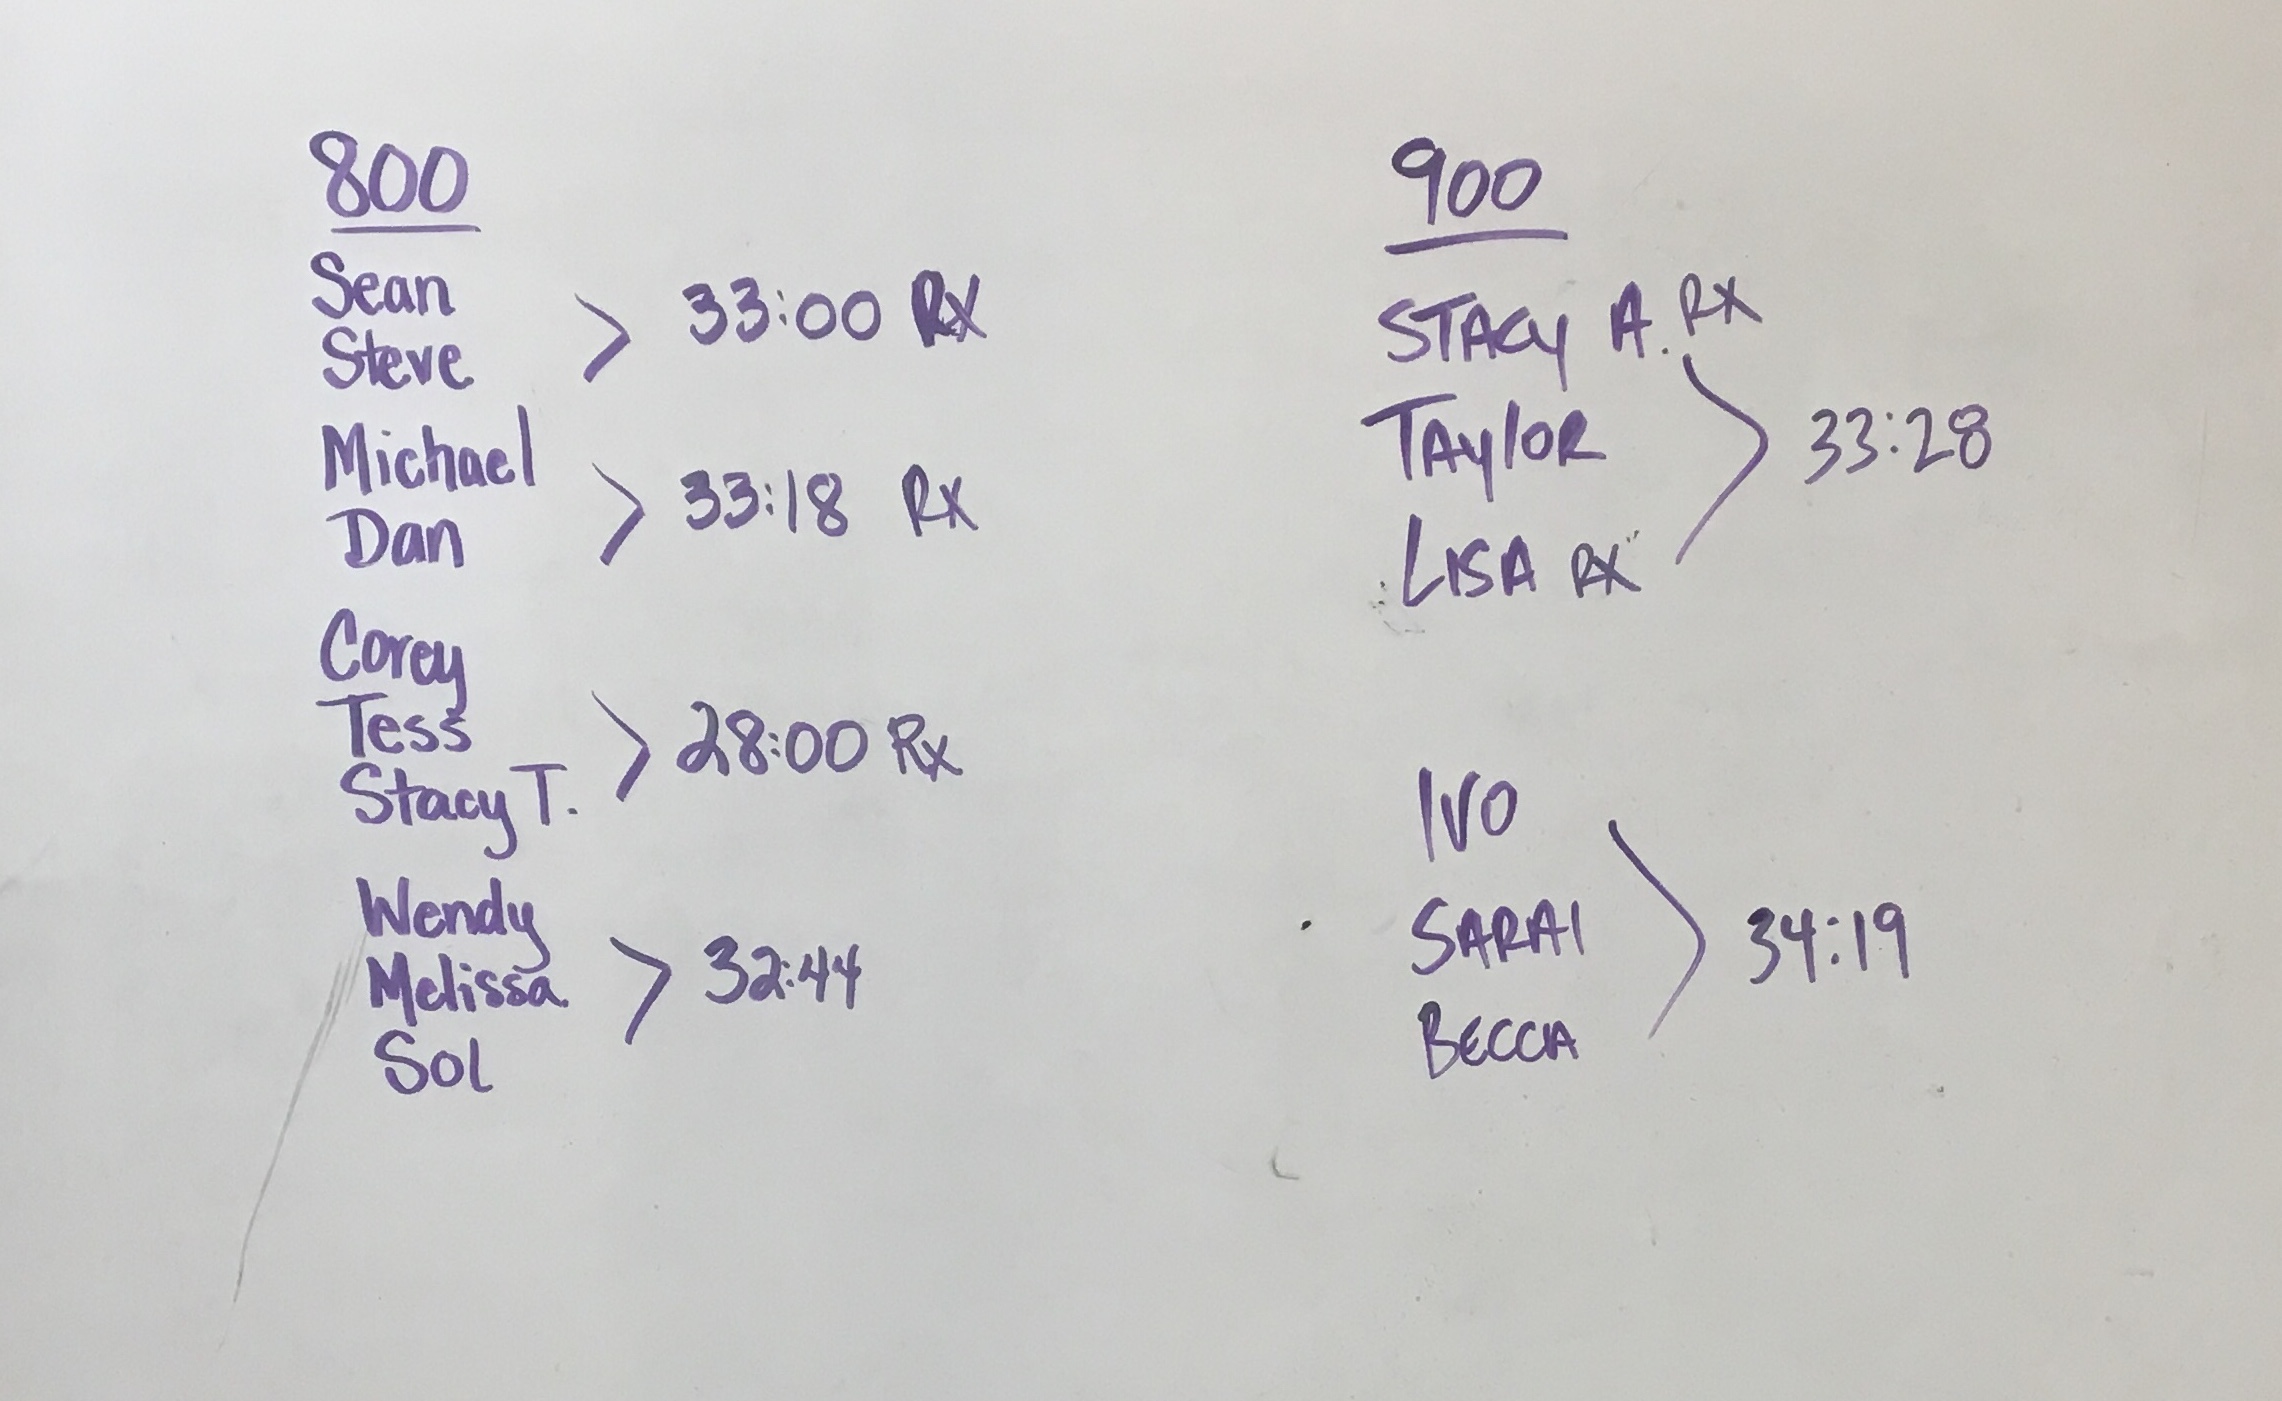 800
Sean
Steve
33:00 Rx
Michael
Dan
33:18 Rx
Corey
Tess
Stacy T.
28:00 Rx
Wendy
Melissa
Sol
32:44
900
STACY A. RX
TAylOR
LISA RX
33:28
IVO
SARAI
BECCA
34:19